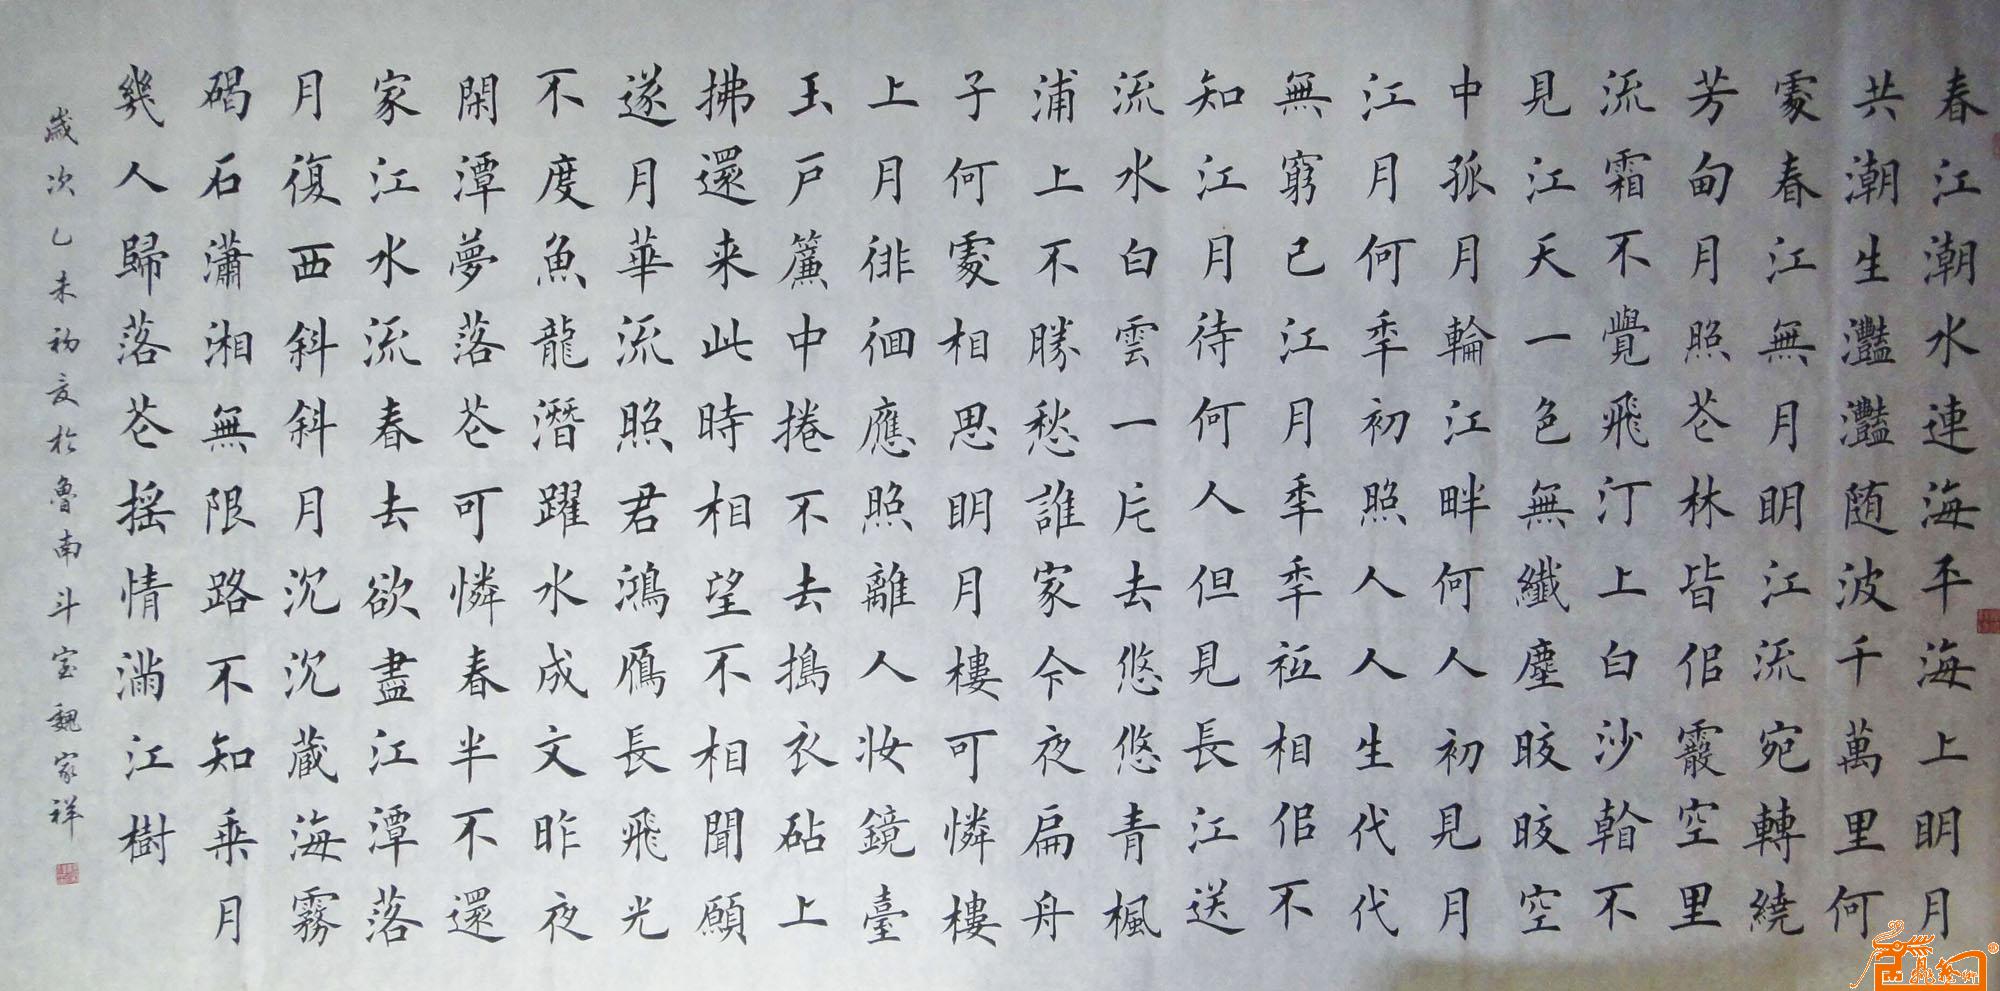 春江潮水連海平海上明月
共潮生灩灩随波千萬里何
處春江無月明江流宛轉繞
芳甸月照芲林皆佀霰空里
流霜不覺飛汀上白沙看不
見江天一色無纖塵晈晈空
中孤月輪江畔何人初見月
江月何季初照人人生代代
無窮已江月季季祇相佀不
知江月待何人但見長江送
流水白雲一片去悠悠青楓
浦上不勝愁誰家今夜扁舟
子何處相思明月樓可憐樓
上月徘徊應照離人妝鏡臺
玉戶簾中捲不去搗衣砧上
拂還来此時相望不相聞願
遂月華流照君鴻雁長飛光
不度魚龍潛躍水成文昨夜
閑潭夢落芲可憐春半不還
家江水流春去欲盡江潭落
月復西斜斜月沉沉藏海霧
碣石瀟湘無限路不知乘月
幾人歸落芲搖情滿江樹
歲次乙未初夏於魯南斗室魏家祥